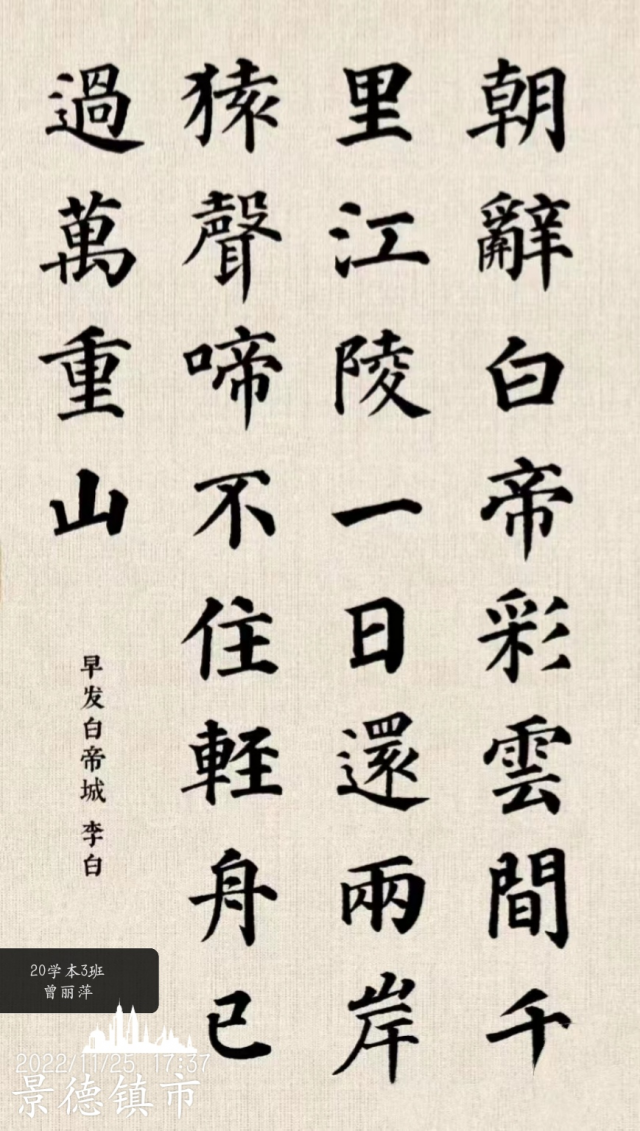 朝辭白帝彩雲間千
里江陵一日還兩岸
猿聲啼不住輕舟已
過萬重山
早发白帝城 李白
20学本3班
曾丽萍
2022/11/25 17:37
景德镇市